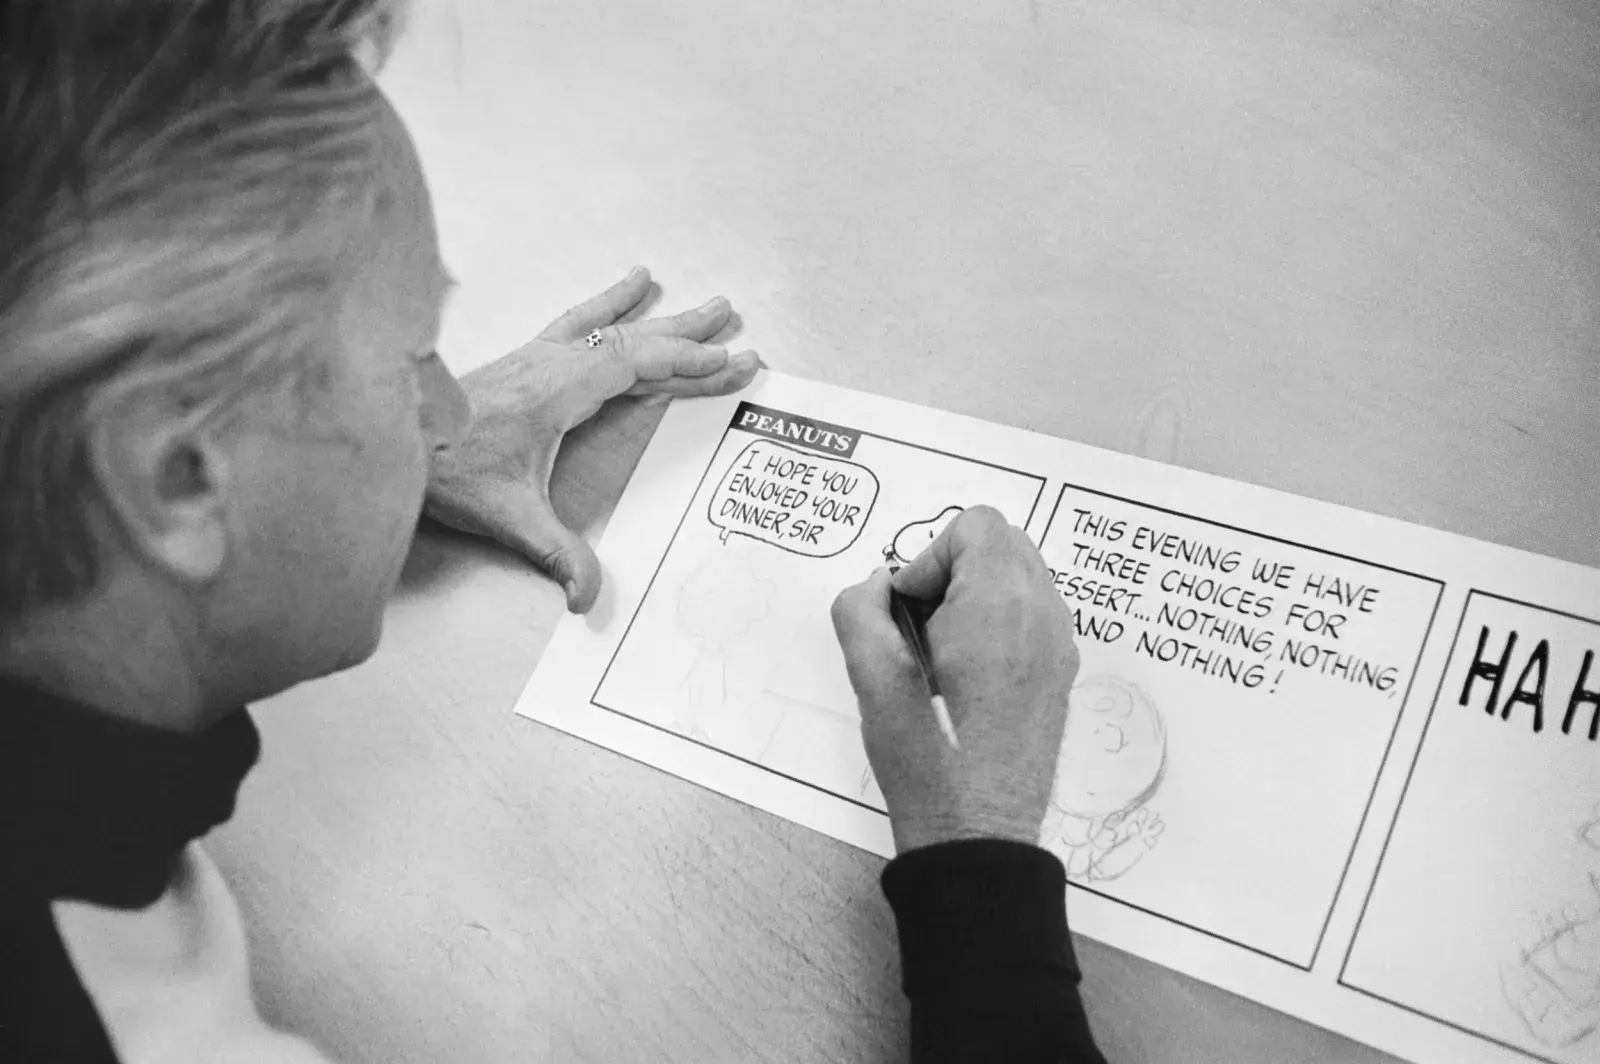 PEANUTS
I HOPE YOU
ENJOYED YOUR
DINNER, SIR
THIS EVENING WE HAVE
THREE CHOICES FOR
DESSERT... NOTHING, NOTHING,
AND NOTHING!
HA H